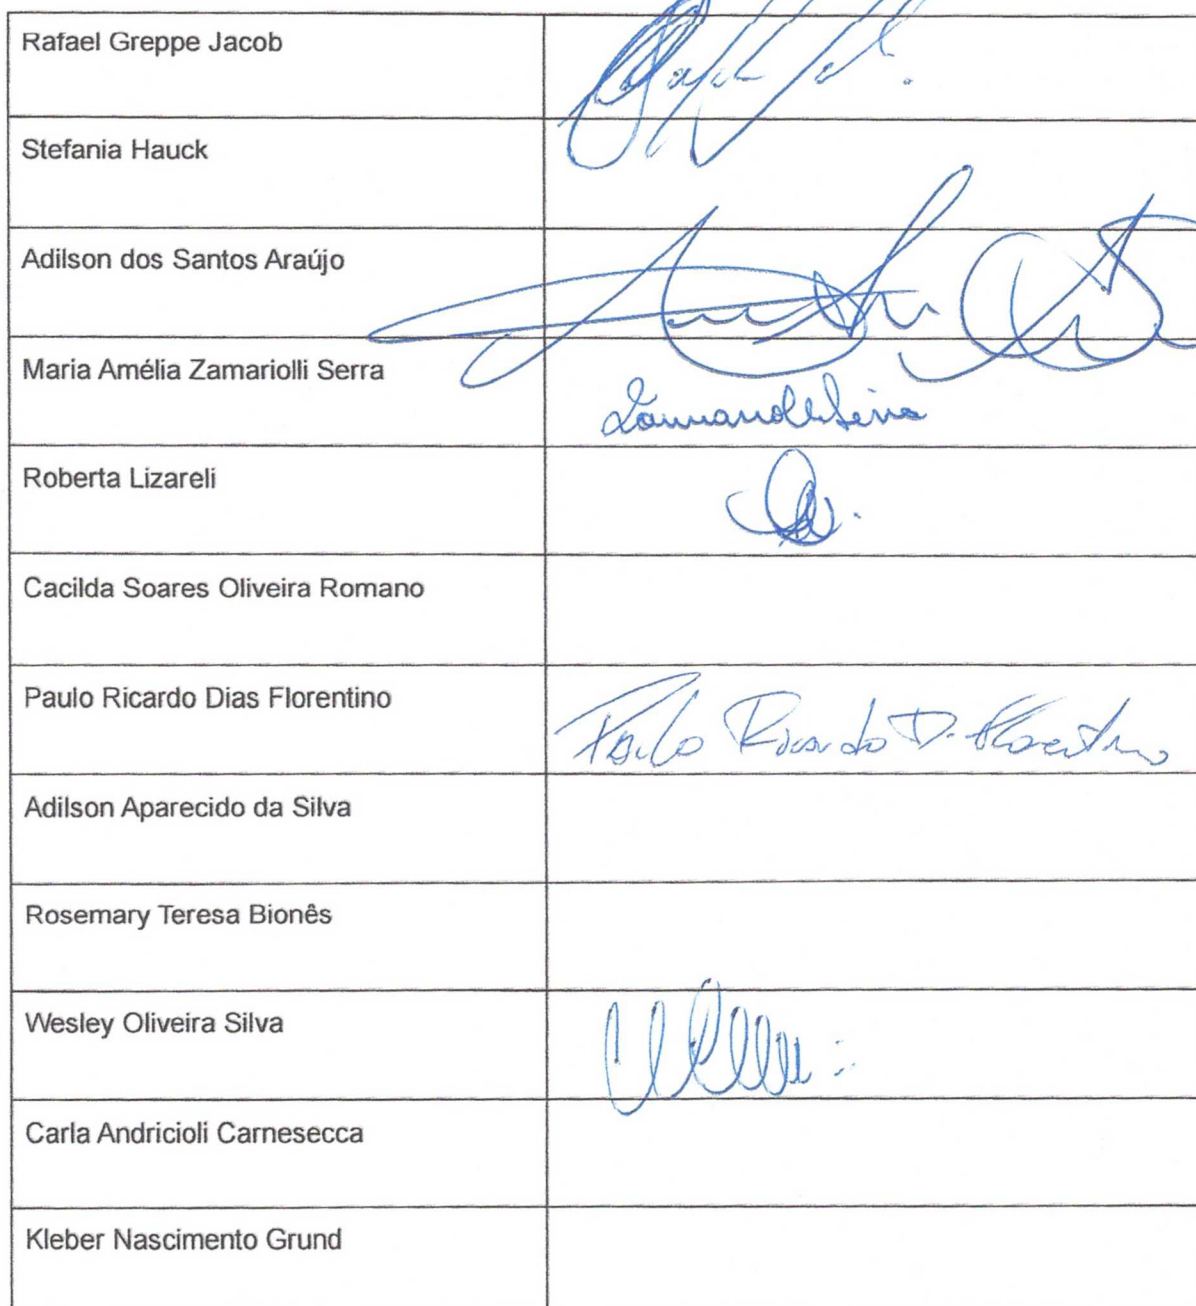 Rafael Greppe Jacob
Stefania Hauck
Adilson dos Santos Araújo
Maria Amélia Zamariolli Serra
Roberta Lizareli
Cacilda Soares Oliveira Romano
Paulo Ricardo Dias Florentino
Paulo Ricardo D. Florentino
Adilson Aparecido da Silva
Rosemary Teresa Bionês
Wesley Oliveira Silva
Carla Andricioli Carnesecca
Kleber Nascimento Grund